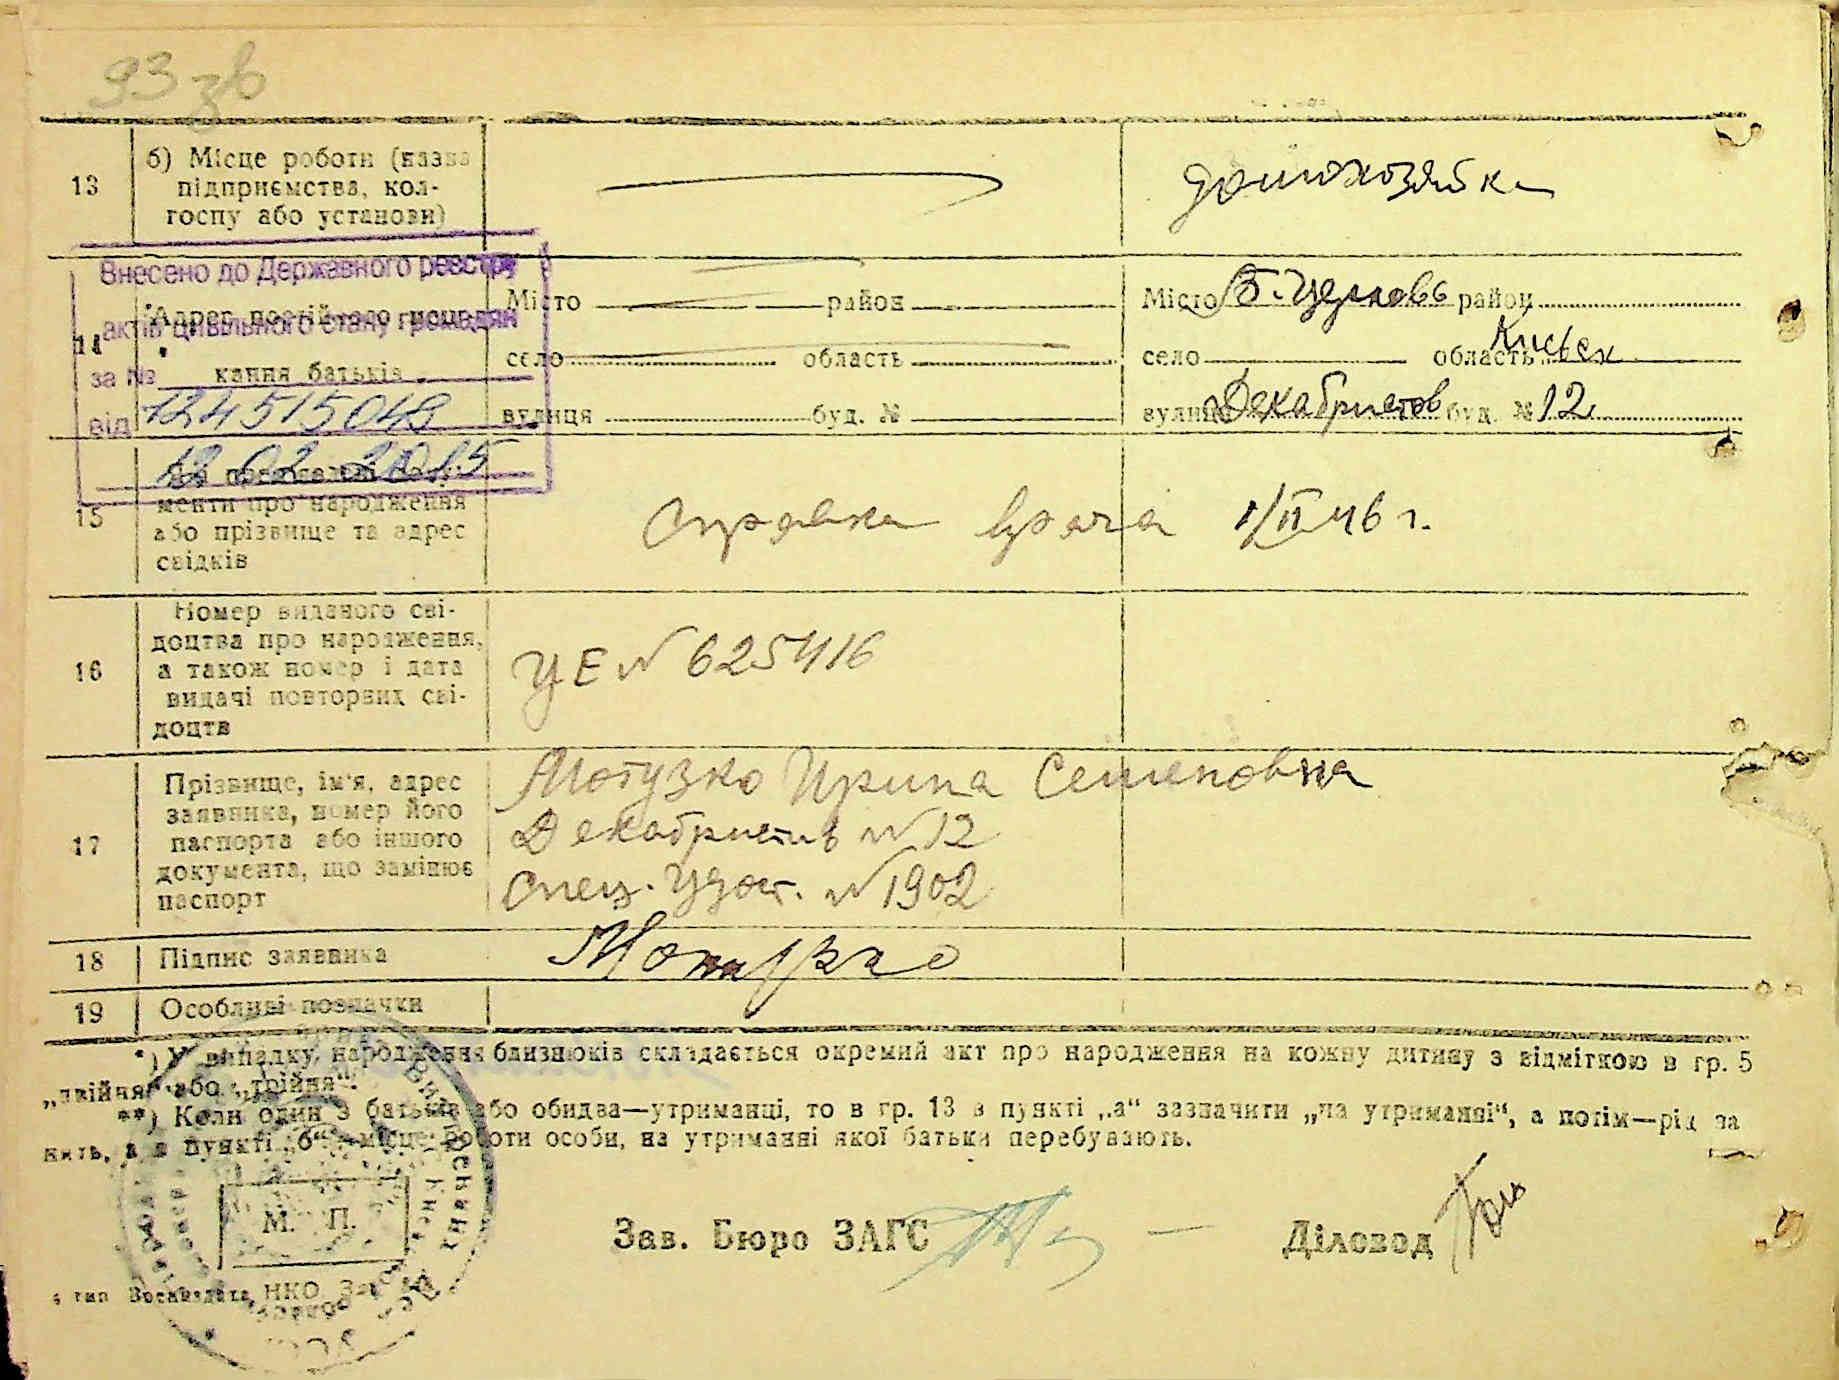 93 зв
13
б) Місце роботи (назва
підприємства, кол-
госпу або установи)
домохозяйка
Внесено до Державного реєстру
актів цивільного стану громадян
за №
124515049
від
12 02 2015
14
Адрес постійного мешкан
кання батьків
Місто район
село область
вулиця буд. №
Місто Б. Церковь район
село область Киевск
вулиця Декабристов буд. № 12.
15
Які пред'явлені доку-
менти про народження
або прізвище та адрес
свідків
Справка врача 1/II 46 г.
16
Номер виданого сві-
доцтва про народження,
а також номер і дата
видачі повторних сві-
доцтв
УЕ N 625416
17
Прізвище, ім'я, адрес
заявника, номер його
паспорта або іншого
документа, що замінює
паспорт
Мотузко Ирина Семеновна
Декабристів N 12
Спец. Удост. N 1902
18
Підпис заявника
Мотузко
19
Особливі позначки
*) У випадку народження близнюків складається окремий акт про народження на кожну дитину з відміткою в гр. 5
„двійня“ або „трійня“.
**) Коли один з батьків або обидва—утриманці, то в гр. 13 в пункті „а“ зазначити „на утриманні“, а потім—рід за
нять, а в пункті „б“—місце роботи особи, на утриманні якої батьки перебувають.
М. П.
Зав. Бюро ЗАГС
Діловод